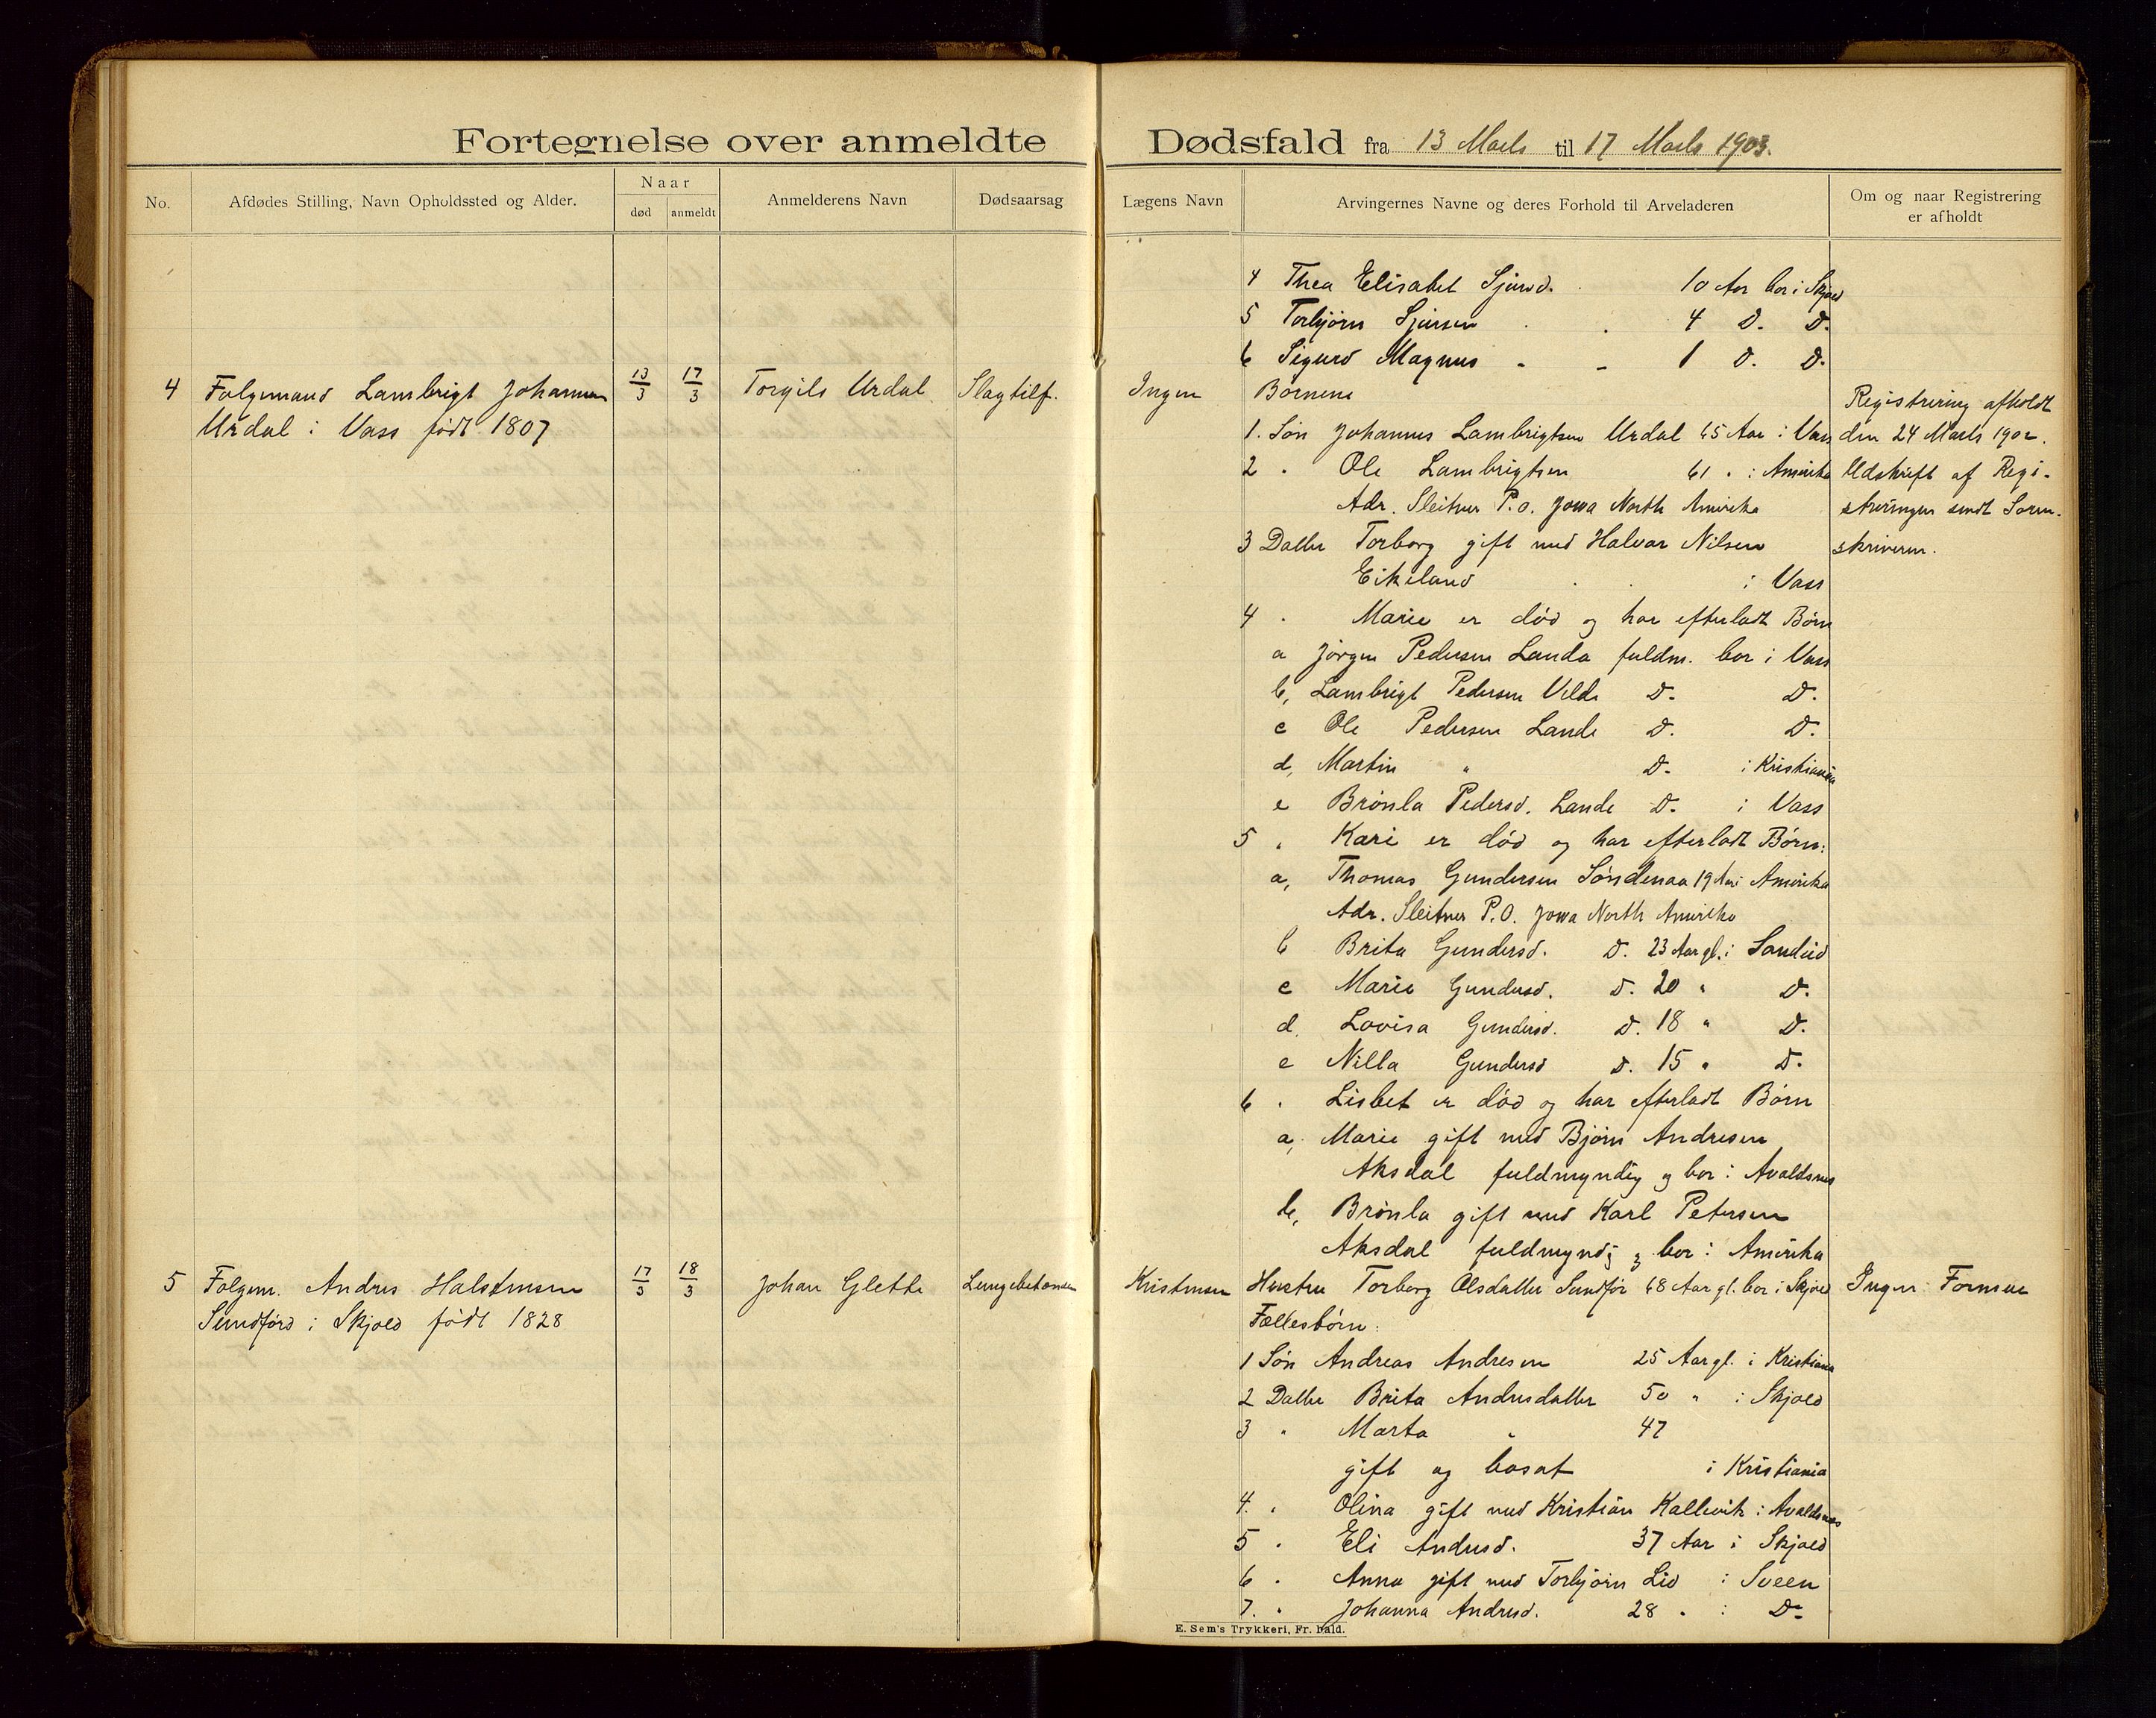 Fortegnelse over anmeldte Dødsfald fra 13 Marts til 17 Marts 1903.
No.
Afdødes Stilling, Navn Opholdssted og Alder.
Naar
død
anmeldt
Anmelderens Navn
Dødsaarsag
Lægens Navn
Arvingernes Navne og deres Forhold til Arveladeren
Om og naar Registrering
er afholdt
4 Thea Elisabet Sjursd. 10 Aar bor i Skjold
5 Torbjørn Sjursen 4 D. D.
6 Sigurd Magnus " " 1 D. D.
4 Folgemand Lambrigt Johannesen 13/3 17/3 Torgils Urdal Slagtilf. Ingen Børnene
Urdal i Vass født 1807
1. Søn Johannes Lambrigtsen Urdal 65 Aar i Vass
2 " Ole Lambrigtsen 61 " i Amerika
Adr. Sleitner P.o. Jowa North Amerika
3 Datter Torborg gift med Halvor Nilsen
Eikeland i Vass
4 " Marie er død og har efterladt Børn
a Jørgen Pedersen Landa fuldm. bor i Vass
b, Lambrigt Pedersen Velde D. D.
c Ole Pedersen Lande D. D.
d, Martin " D. i Kristiania
e Brønla Pedersd. Lande D. i Vass
5 " Kari er død og har efterladt Børn:
a, Thomas Gundersen Søndenaa 19 Aar i Amerika
Adr. Sleitner P.O. Jowa North Amerika
b Brita Gundersd. D. 23 Aar gl. i Sandeid
c Marie Gundersd. D. 20 " D.
d. Lovisa Gundersd. D. 18 " D.
e Nilla Gundersd D. 15 " D.
6 " Lisbet er død og har efterladt Børn
a, Marie gift med Bjørn Andresen
Aksdal fuldmyndig og bor i Avaldsnes
b, Brønla gift med Karl Petersen
Aksdal fuldmyndig og bor i Amerika
Registrering afholdt
den 24 Marts 1902.
Udskrift af Regi-
streringen sendt Soren-
skriveren.
5 Folgem. Andres Halstensen 17/3 18/3 Johan Glette Lungebetændelse Kristensen Hustru Torborg Olsdatter Sundfør 68 Aar gl. bor i Skjold Ingen Formue
Sundførd i Skjold født 1828
Fællesbørn:
1 Søn Andreas Andresen 25 Aar gl. i Kristiania
2 Datter Brita Andresdatter 50 " i Skjold
3 " Marta " 47
gift og bosat i Kristiania
4. " Olina gift med Kristian Kallevik i Avaldsnes
5 " Eli Andresd. 37 Aar i Skjold
6 " Anna gift med Torbjørn Lid i Sveen
7. " Johanna Andresd. 28 " i D.
E. Sem's Trykkeri, Fr. hald.